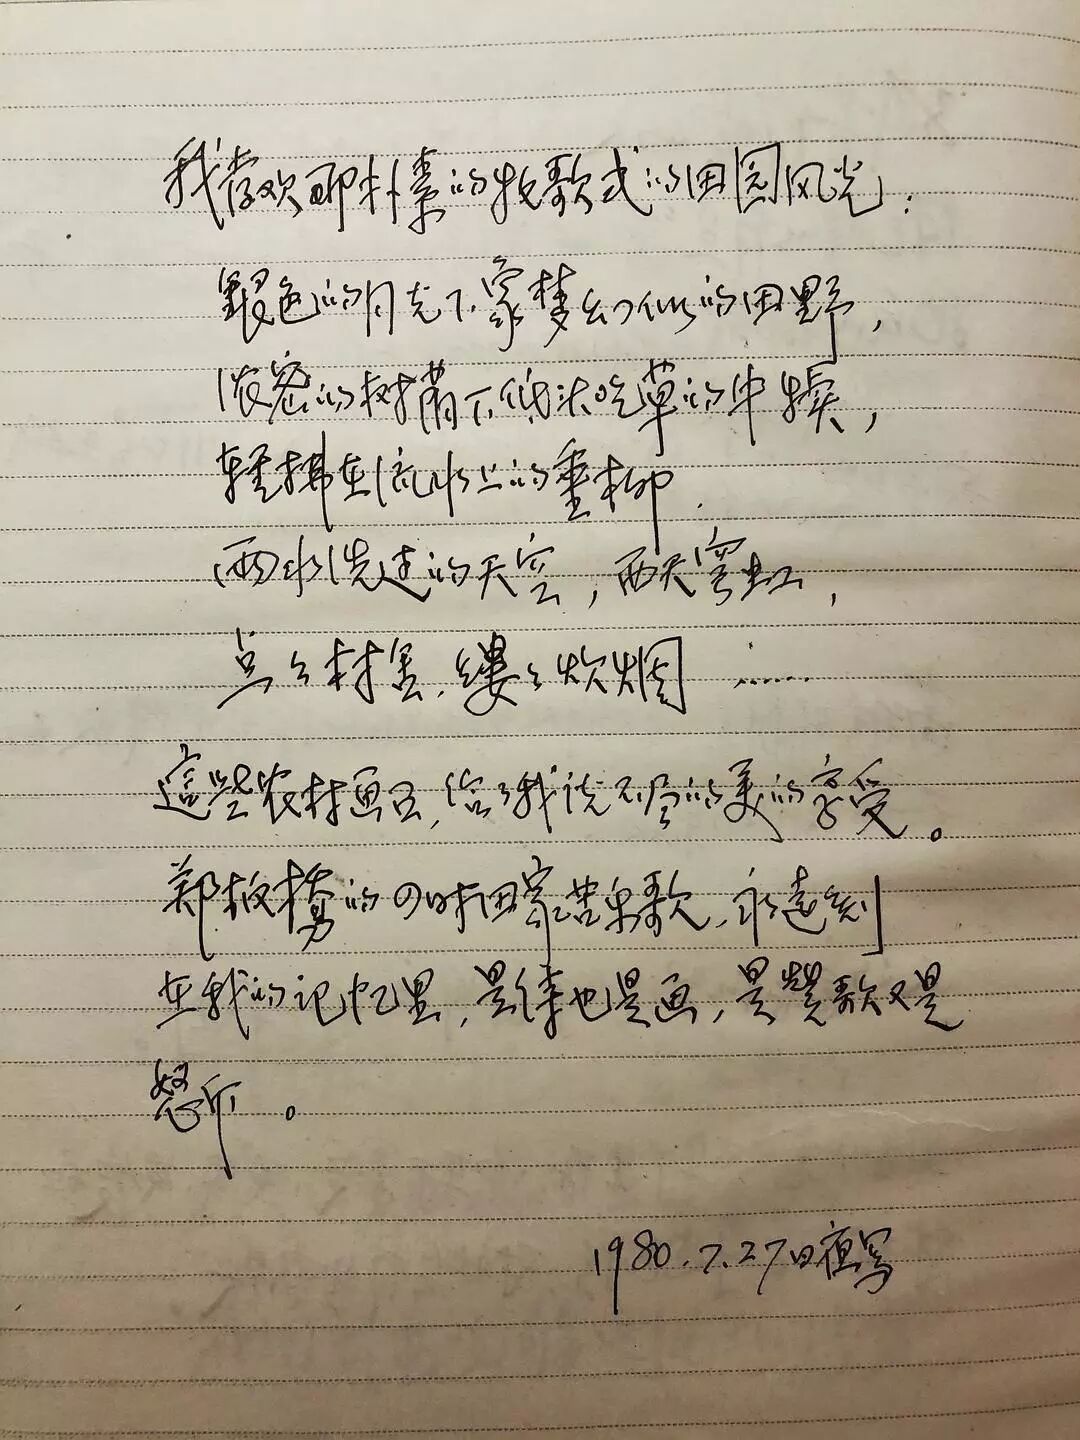 我喜欢那朴素的牧歌式的田园风光：
银色的月光下象梦幻似的田野，
浓密的树荫下低头吃草的牛犊，
轻拂在流水上的垂柳.
雨水洗过的天空，雨天穹虹，
点々村舍，缕々炊烟 ……
這些农村画面，给了我说不尽的美的享受。
郑板桥的四时田家苦乐歌，永远刻
在我的记忆里，是诗也是画，是赞歌又是
怒斥。
1980.7.27日夜写